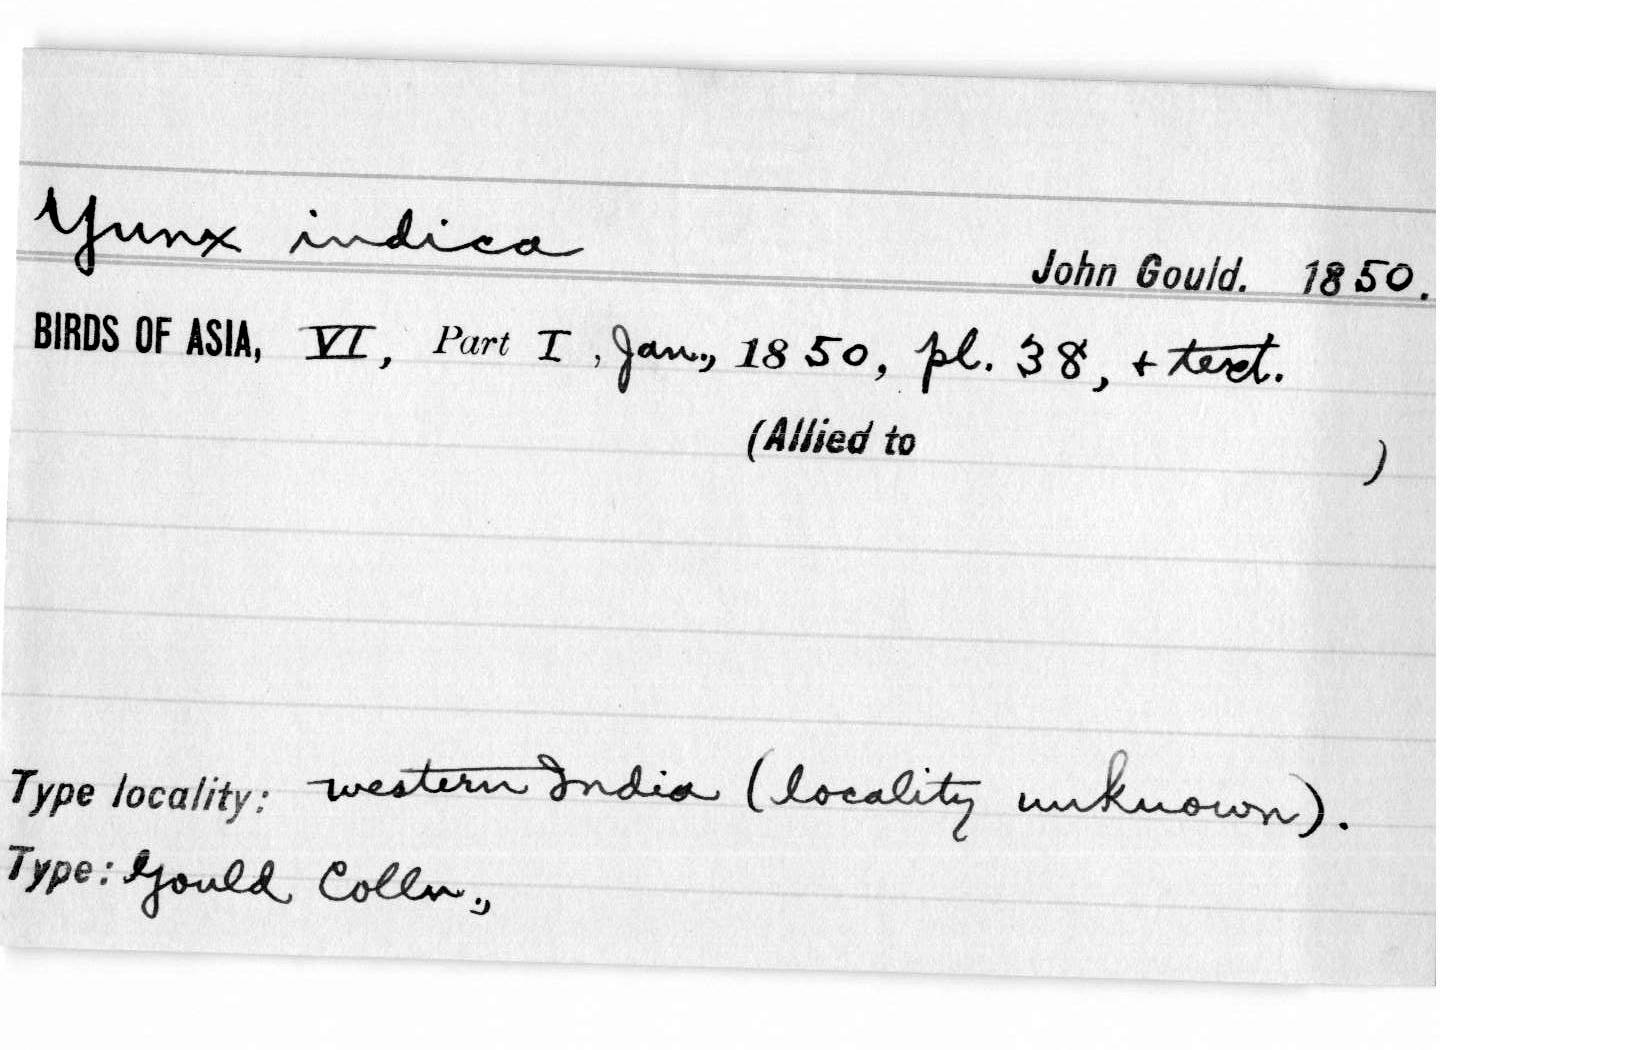 Yunx indica
John Gould. 1850.
BIRDS OF ASIA, VI, Part I, Jan., 1850, pl. 38, + text.
(Allied to )
Type locality: western India (locality unknown).
Type: Gould Colln.,